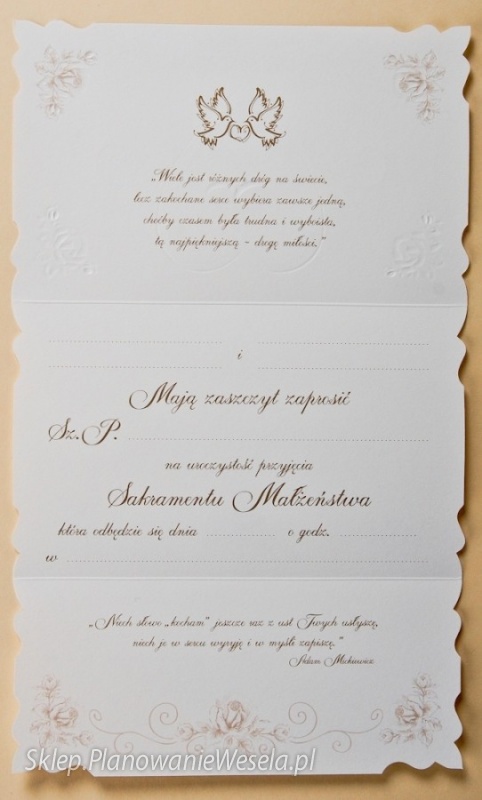 „Wiele jest różnych dróg na świecie,
lecz zakochane serce wybiera zawsze jedną,
choćby czasem była trudna i wyboista,
tą najpiękniejszą - drogę miłości."
i
Mają zaszczyt zaprosić
Sz. P.
na uroczystość przyjęcia
Sakramentu Małżeństwa
która odbędzie się dnia o godz.
w
„Niech słowo „kocham" jeszcze raz z ust Twych usłyszę,
niech je w sercu wyryję i w myśli zapiszę."
Adam Mickiewicz
Sklep.PlanowanieWesela.pl